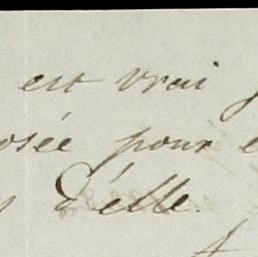 est vrai
osée pour
d'elle.